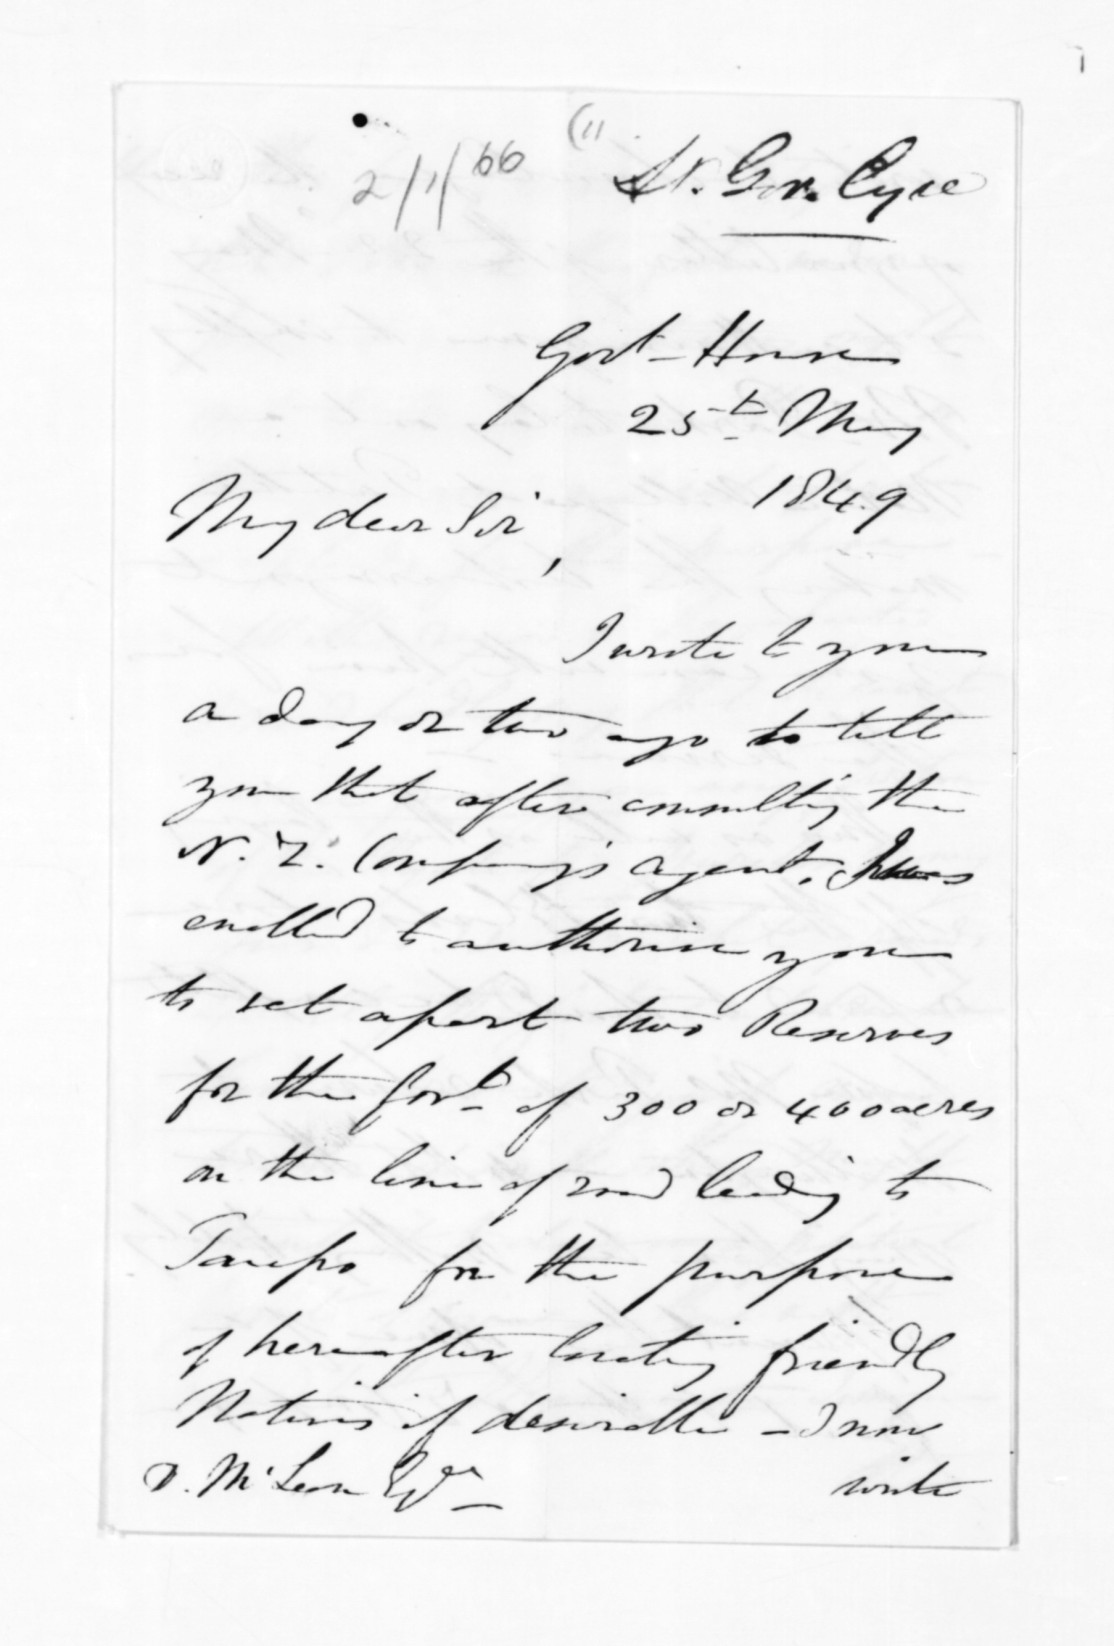 2/1/66 (11
Lt. Gov. Eyre
Govt- House
25th May
1849
My dear Sir,
I wrote to you
a day or two ago to tell
you that after consulting the
N. Z. Company's agent, I was
enabled to authorise you
to set apart two Reserves
for the Govt of 300 or 400 acres
on the line of road leading to
Taupo for the purpose
of hereafter locating friendly
Natives if desirable - I now
D. McLean Esqr -
write